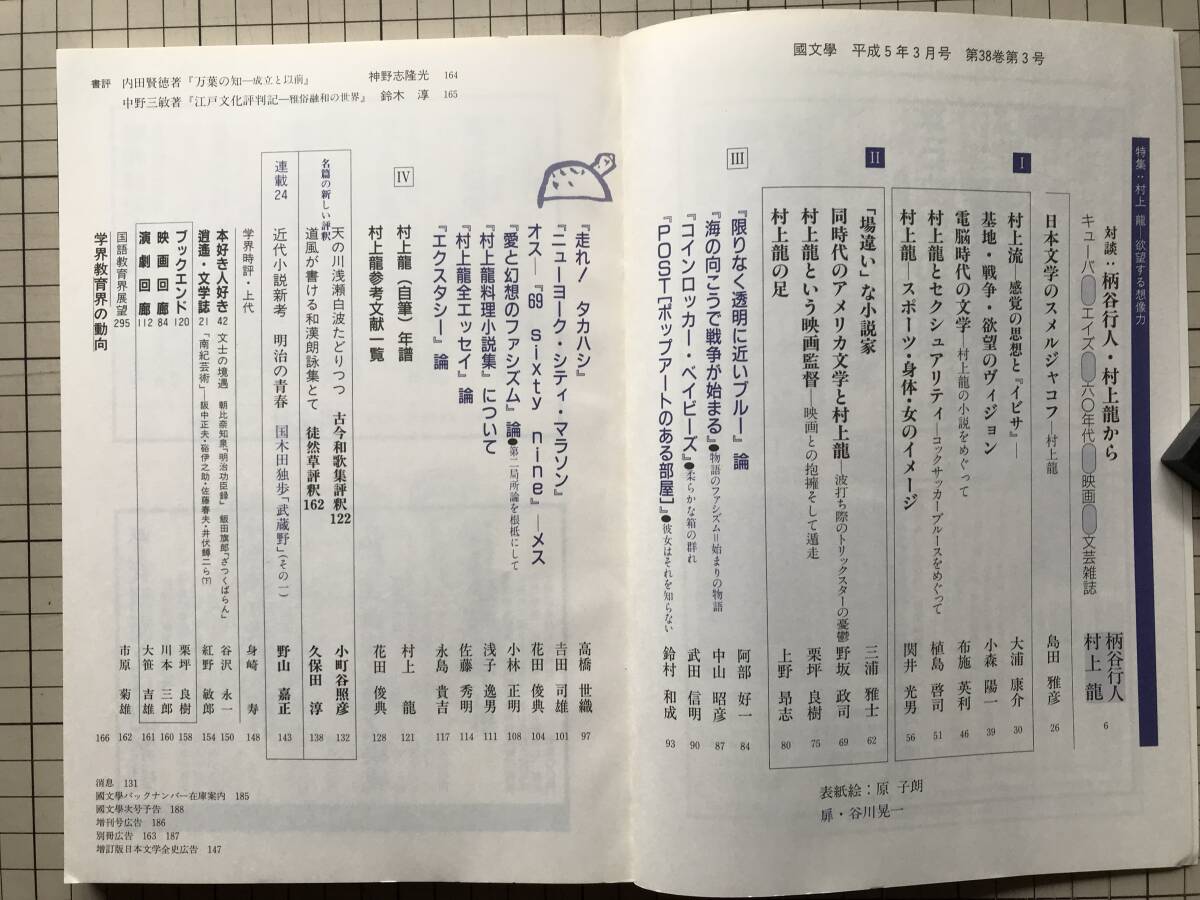 國文學　平成5年3月号　第38巻第3号
特集：村上 龍―欲望する想像力
対談：柄谷行人・村上龍から
キューバ エイズ 六〇年代 映画 文芸雑誌
柄谷行人
村上龍
6
日本文学のスメルジャコフ―村上龍　島田 雅彦 26
I
村上流―感覚の思想と『イビサ』　大浦 康介 30
基地・戦争・欲望のヴィジョン　小森 陽一 39
電脳時代の文学―村上龍の小説をめぐって　布施 英利 46
村上龍とセクシュアリティ―コックサッカーブルースをめぐって　植島 啓司 51
村上龍―スポーツ・身体・女のイメージ　関井 光男 56
II
「場違い」な小説家　三浦 雅士 62
同時代のアメリカ文学と村上龍―波打ち際のトリックスターの憂鬱　野坂 政司 69
村上龍という映画監督―映画との抱擁そして遁走　栗坪 良樹 75
村上龍の足　上野 昂志 80
III
『限りなく透明に近いブルー』論　阿部 好一 84
『海の向こうで戦争が始まる』●物語のファシズム＝始まりの物語　中山 昭彦 87
『コインロッカー・ベイビーズ』●柔らかな箱の群れ　武田 信明 90
『POST[ポップアートのある部屋]』●彼女はそれを知らない　鈴村 和成 93
『走れ！タカハシ』　高橋 世織 97
『ニューヨーク・シティ・マラソン』　吉田 司雄 101
オス―『69 sixty nine』―メス　花田 俊典 104
『愛と幻想のファシズム』論●第二局所論を根柢にして　小林 正明 108
『村上龍料理小説集』について　浅子 逸男 111
『村上龍全エッセイ』論　佐藤 秀明 114
『エクスタシー』論　永島 貴吉 117
IV
村上龍（自筆）年譜　村上 龍 121
村上龍参考文献一覧　花田 俊典 128
名篇の新しい評釈
天の川浅瀬白波たどりつつ　古今和歌集評釈122　小町谷照彦 132
道風が書ける和漢朗詠集とて　徒然草評釈162　久保田 淳 138
連載24　近代小説新考　明治の青春　国木田独歩「武蔵野」（その一）　野山 嘉正 143
学界時評・上代　身崎 寿 148
本好き人好き42　文士の境遇　朝比奈知泉「明治功臣録」　飯田旗郎「ざつくばらん」　谷沢 永一 150
逍遥・文学誌21　「南紀芸術」―阪中正夫・硲伊之助・佐藤春夫・井伏鱒二ら（下）　紅野 敏郎 154
ブックエンド120　栗坪 良樹 158
映画回廊84　川本 三郎 160
演劇回廊112　大笹 吉雄 161
国語教育界展望295　市原 菊雄 162
学界教育界の動向　166
書評　内田賢徳著『万葉の知―成立と以前』　神野志隆光 164
中野三敏著『江戸文化評判記―雅俗融和の世界』　鈴木 淳 165
消息 131
國文學バックナンバー在庫案内 185
國文學次号予告 188
増刊号広告 186
別冊広告 163 187
増訂版日本文学全史広告 147
表紙絵：原 子朗
扉・谷川晃一